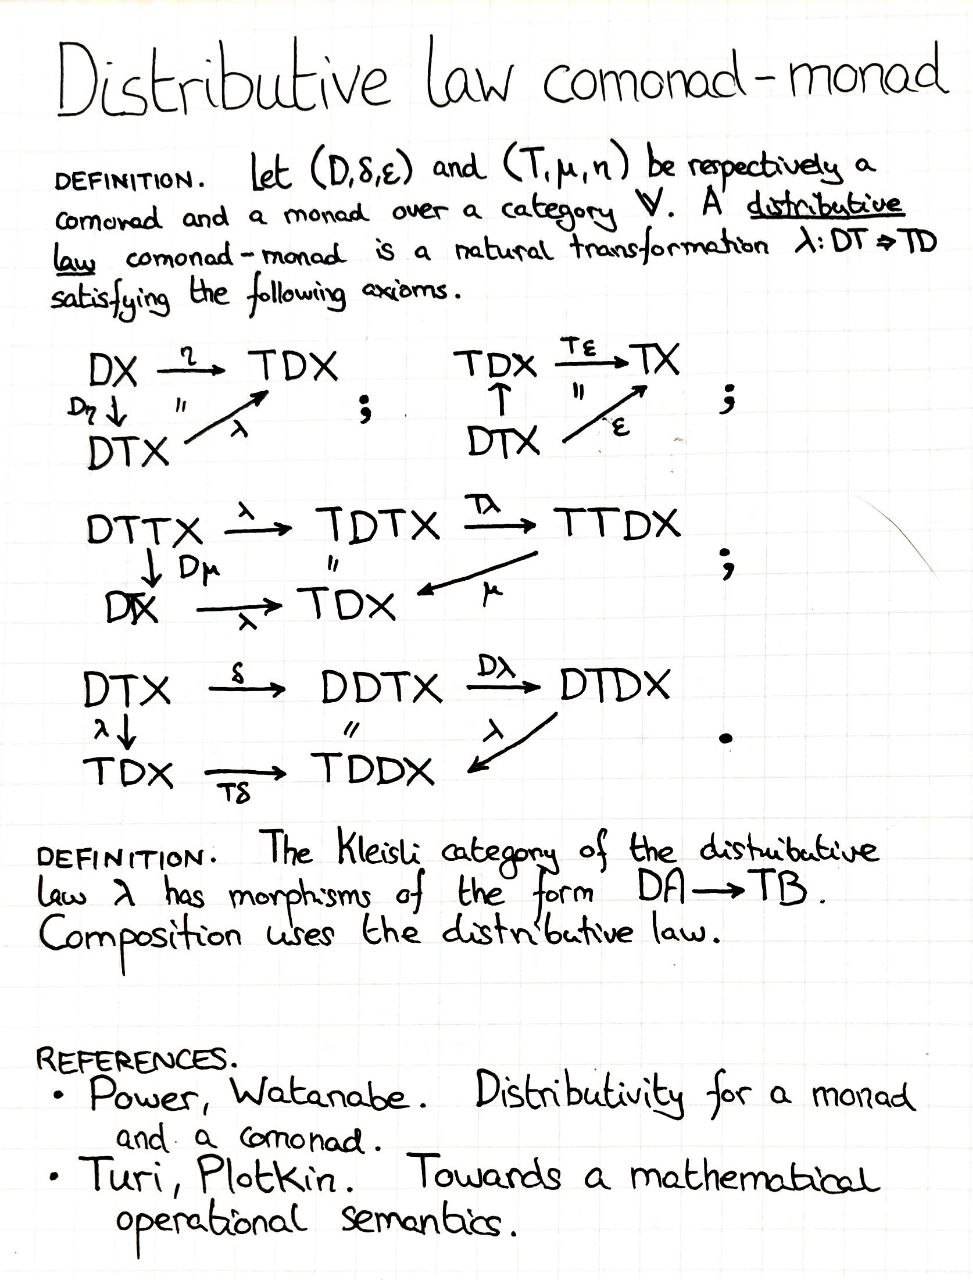 Distributive law comonad-monad
DEFINITION. Let (D,δ,ε) and (T,μ,η) be respectively a
comonad and a monad over a category V. A distributive
law comonad-monad is a natural transformation λ: DT ⇒ TD
satisfying the following axioms.
DX η→ TDX TDX Tε→ TX
Dη ↓ " λ ; ↑ " ε ;
DTX DTX
DTTX λ→ TDTX Tλ→ TTDX
↓ Dμ " μ ;
DTX λ→ TDX
DTX δ→ DDTX Dλ→ DTDX
λ ↓ " λ .
TDX Tδ→ TDDX
DEFINITION. The Kleisli category of the distributive
law λ has morphisms of the form DA → TB.
Composition uses the distributive law.
REFERENCES.
• Power, Watanabe. Distributivity for a monad
and a comonad.
• Turi, Plotkin. Towards a mathematical
operational semantics.